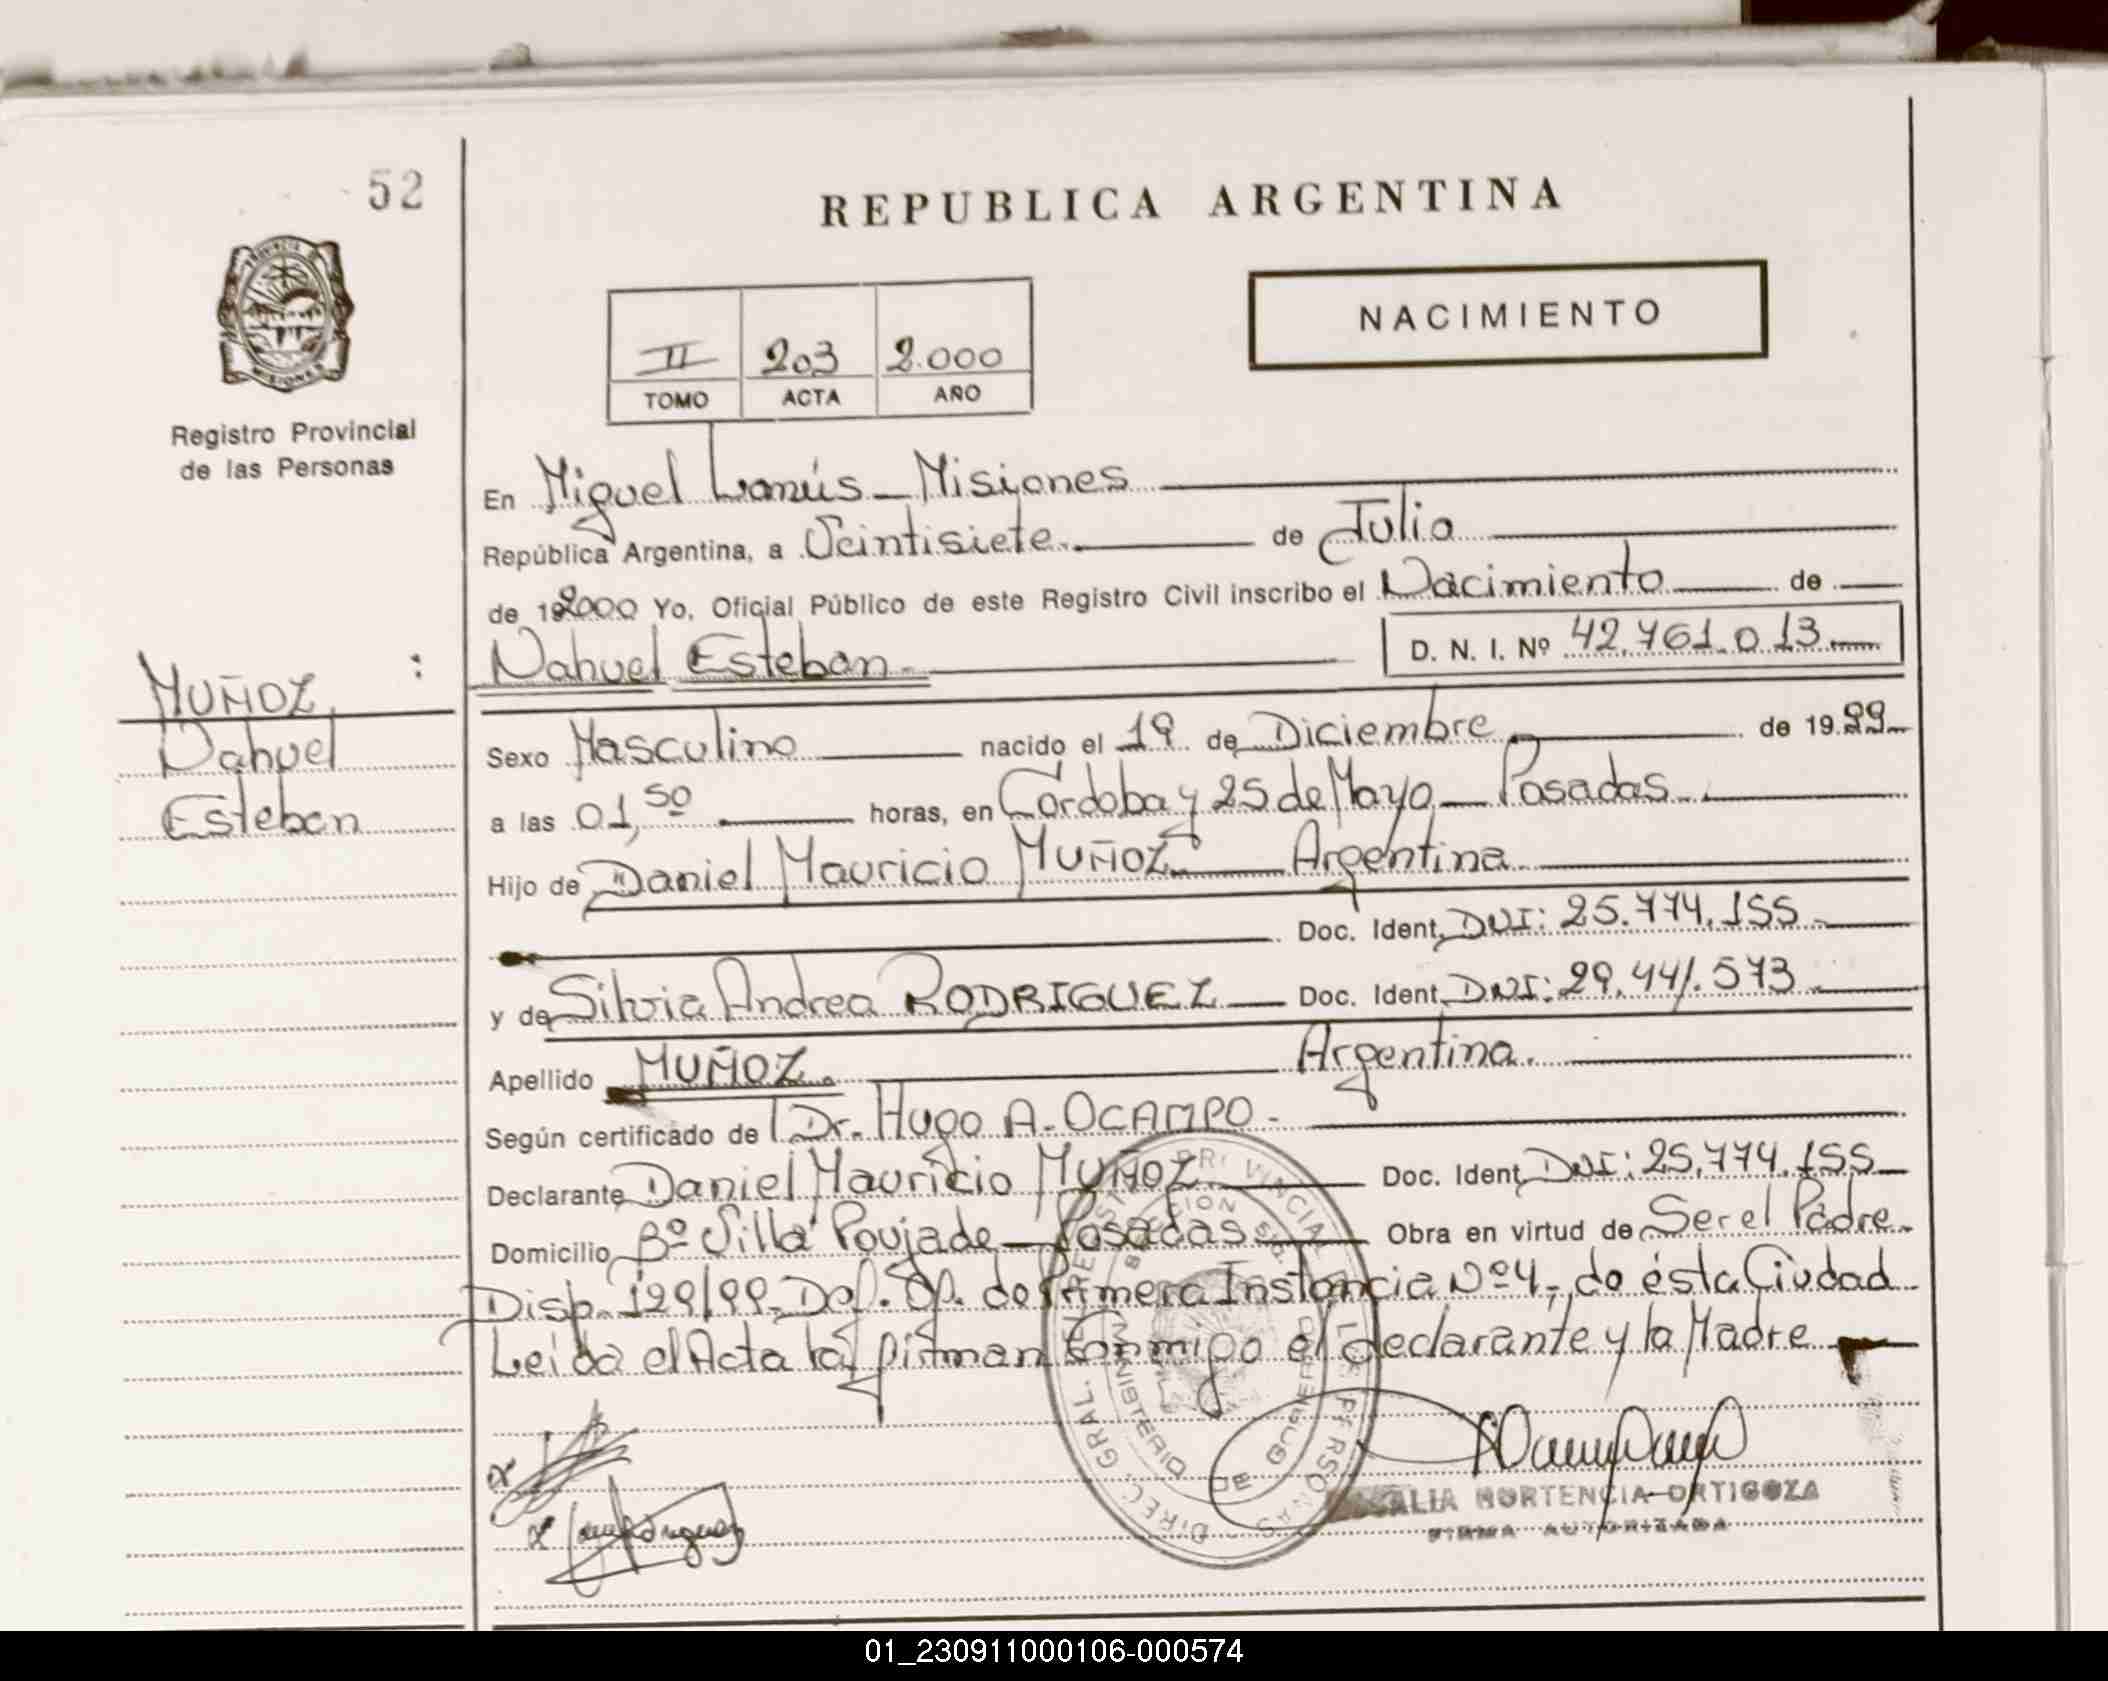 52
REPUBLICA ARGENTINA
NACIMIENTO
II 203 2.000
TOMO ACTA AÑO
PROVINCIA
MISIONES
Registro Provincial
de las Personas
En Miguel Lanús - Misiones
República Argentina, a Veintisiete de Julio
de 192000 Yo, Oficial Público de este Registro Civil inscribo el Nacimiento de
Nahuel Esteban D. N. I. Nº 42.761.013
MUÑOZ :
Nahuel
Esteban
Sexo Masculino nacido el 19 de Diciembre de 19.99
a las 01,50 horas, en Córdoba y 25 de Mayo - Posadas.
Hijo de Daniel Mauricio MUÑOZ Argentina
Doc. Ident. DNI: 25.774.155
y de Silvia Andrea RODRIGUEZ Doc. Ident. DNI: 29.441.573
Apellido MUÑOZ. Argentina.
Según certificado de Dr. Hugo A. OCAMPO -
Declarante Daniel Mauricio MUÑOZ Doc. Ident. DNI: 25.774.155
Domicilio Bº Villa Poujade - Posadas Obra en virtud de Ser el Padre
Disp. 129/99 - Def. Of. de Primera Instancia Nº 4, de ésta Ciudad
Leída el Acta la firman conmigo el declarante y la Madre
DIREC. GRAL. PROVINCIAL DE LAS PERSONAS
MINISTERIO DE GOBIERNO
HORTENCIA ORTIGOZA
FIRMA AUTORIZADA
01_230911000106-000574